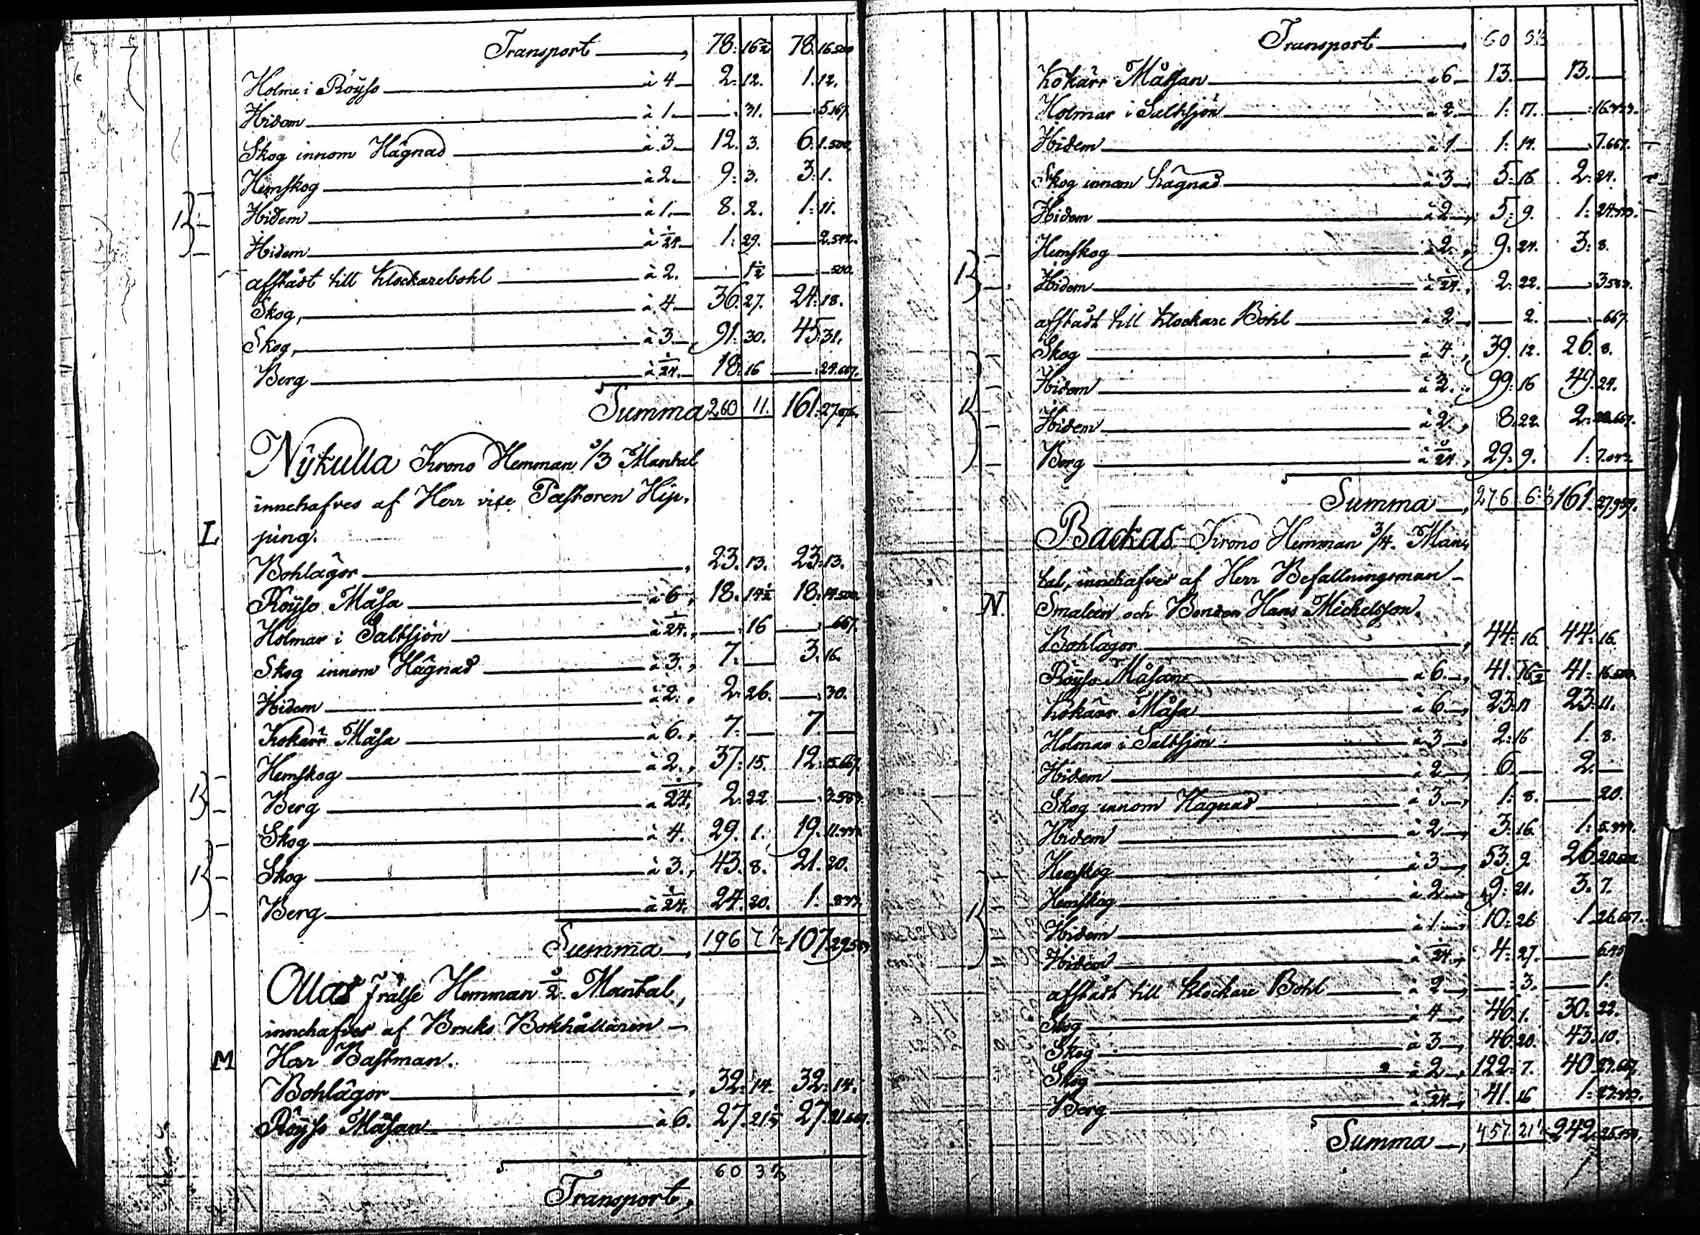 Transport 78. 16½ 78. 16.500
Holme i Röyso à 4 2. 12. 1. 12.
Hidem à 1 31. 5.167.
Skog innom Hägnad à 3 12. 3. 6. 1.500.
Hemskog à 2. 9. 3. 3. 1.
Hidem à 1. 8. 2. 1. 11.
Hidem à 1/24 1. 29. 2.542.
afstådt till Klockarebohl à 2. 1½ .500.
Skog, à 4 36. 27. 24. 18.
Skog, à 3 91. 30. 45. 31.
Berg à 1/24 18. 16 24.667.
Summa 260 11. 161.
L
Nykulla Krono Hemman 1/3 Mantal
innehafves af Herr vise Pastoren Hip-
ping.
Bohlägor 23. 13. 23. 13.
Röyso Måsa à 6 18. 14½ 18. 14.500.
Holmar i Saltsjön à 1/24. 16 .667.
Skog innom Hägnad à 3. 7. 3. 16.
Hidem à 2. 2. 26. 30.
Kokärr Måsa à 6. 7. 7
Hemskog à 2. 37. 15. 12. 15.667.
Berg à 1/24. 2. 22 3.583.
Skog à 4. 29. 1. 19. 11.333.
Skog à 3. 43. 8. 21. 20.
Berg à 1/24. 24. 20. 1.
Summa 196 7½ 107. 29.583
M
Ollas Frälse Hemman ½ Mantal,
innehafves af Bruks Bokhållaren
Herr Bastman.
Bohlägor 32. 14. 32. 14.
Röyso Måsan à 6. 27. 21⅔ 27. 21.667.
60 3⅔
Transport,
Transport 60 3⅔
Kokärr Måssan à 6 13. 13.
Holmar i Saltsjön à 2. 1. 17. 16.333.
Hidem à 1 1. 14. 7.667.
Skog innom Hägnad à 3 5. 16 2. 24.
Hidem à 2 5. 9. 1. 24.333.
Hemskog à 2. 9. 24. 3. 8.
Hidem à 1/24. 2. 22. 3.583.
afstådt till Klockare Bohl à 2 2. .667.
Skog à 4 39. 12. 26. 8.
Hidem à 3. 99. 16 49. 24.
Hidem à 2. 8. 22. 2.
Berg à 1/24. 29. 9. 1.
Summa 276 6⅓ 161
N.
Backas Krono Hemman 3/4. Man-
tal, innehafves af Herr Befallningsman
Smalèn och Bonden Hans Michelsson.
Bohlägor 44. 16. 44. 16.
Röyso Måsan à 6. 41. 16½ 41. 16.500.
Kokärr Måsa à 6 23. 11 23. 11.
Holmar i Saltsjön à 3 2. 16 1. 8.
Hidem à 2 6. 2.
Skog innom Hägnad à 3 1. 8. 20.
Hidem à 2 3. 16. 1. 5.333.
Hemskog à 3 53. 9 26. 20.500.
Hemskog à 2 9. 21. 3. 7.
Hidem à 1 10. 26 1. 26.667.
Hidem à 1/24. 4. 27.
afstådt till Klockare Bohl à 2 3. 1.
Skog à 4 46. 1. 30. 22.
Skog à 3 20. 43. 10.
Skog à 2 122. 7. 40. 23.667.
Berg à 1/24. 41. 16 1. 23.333.
Summa 457 21 242.